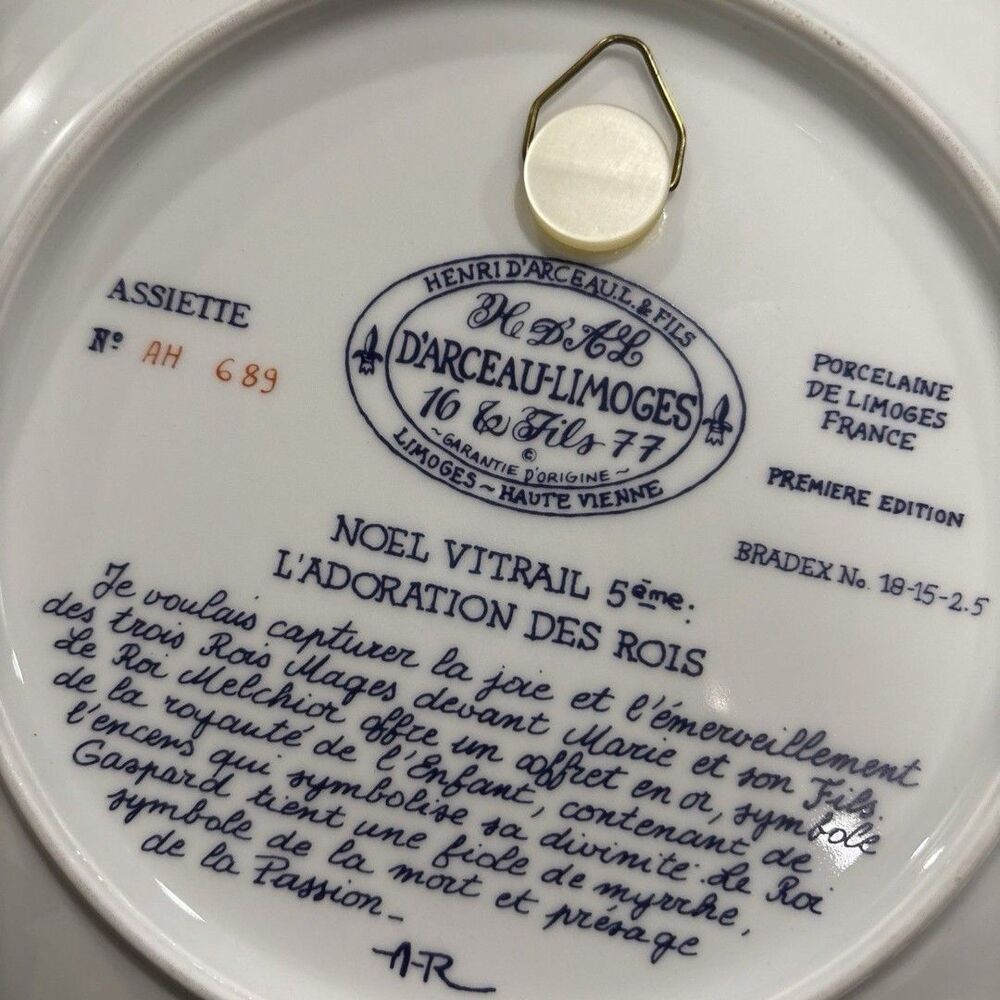 HENRI D'ARCEAU.L.& FILS
H D'A&L
D'ARCEAU-LIMOGES
16 & Fils 77
©
~GARANTIE D'ORIGINE~
LIMOGES ~ HAUTE VIENNE
ASSIETTE
Nº AH 689
PORCELAINE
DE LIMOGES
FRANCE
PREMIERE EDITION
BRADEX No. 18-15-2.5
NOEL VITRAIL 5ème:
L'ADORATION DES ROIS
Je voulais capturer la joie et l'émerveillement
des trois Rois Mages devant Marie et son Fils.
Le Roi Melchior offre un coffret en or, symbole
de la royauté de l'Enfant, contenant de
l'encens qui symbolise sa divinité. Le Roi
Gaspard tient une fiole de myrrhe,
symbole de la mort et présage
de la Passion._
A-R